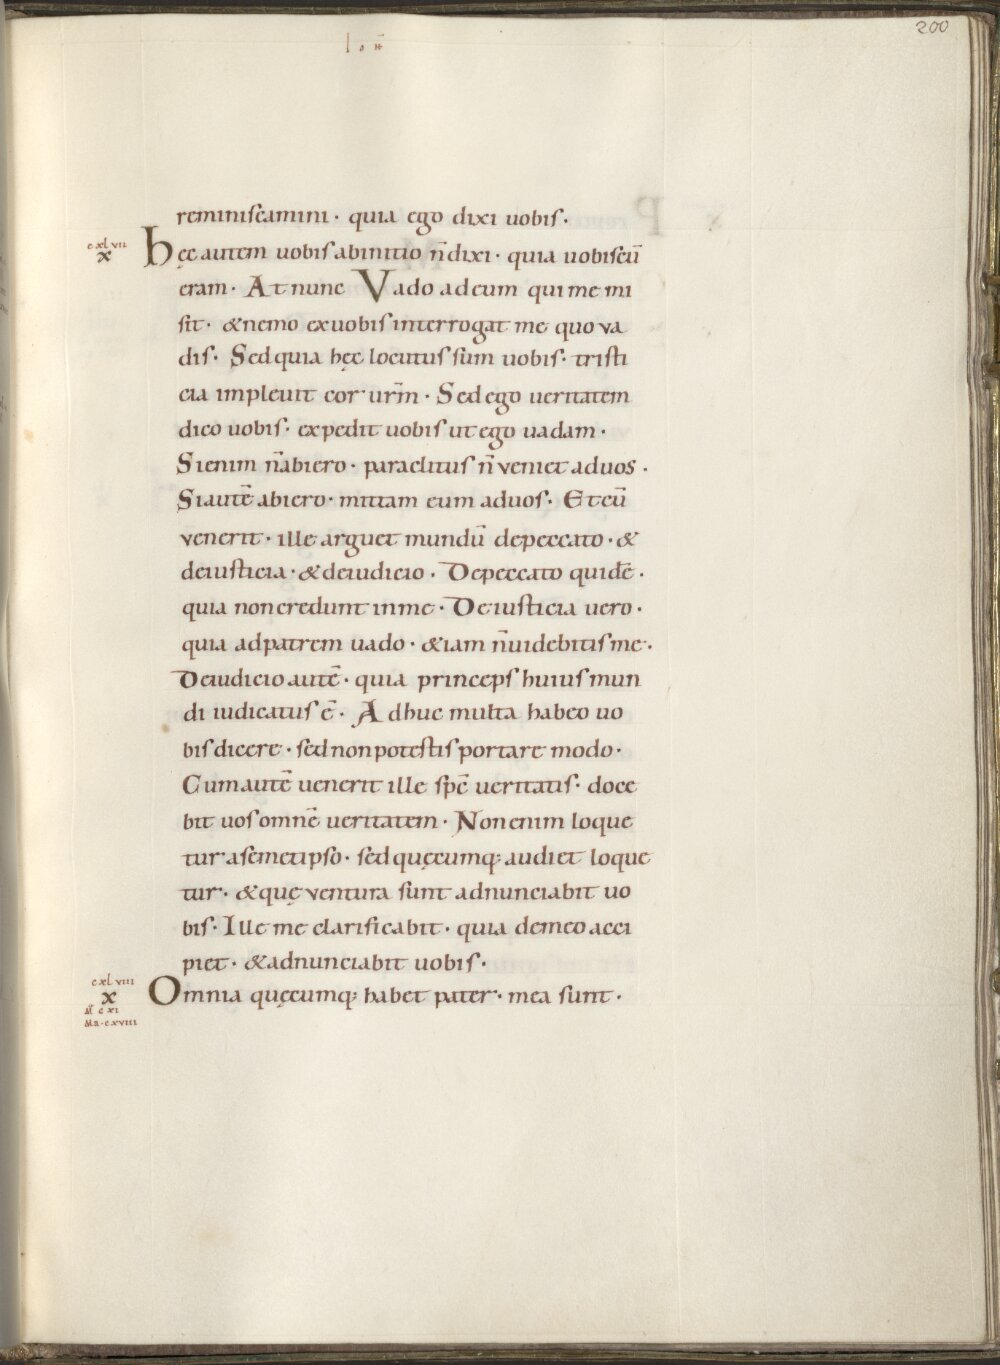 200
Ioh̄
reminiscamini · quia ego dixi uobis ·
cxlvii
x
hęc autem uobis abinitio n̄ dixi · quia uobiscū
eram · At nunc Vado adeum qui me mi
sit · & nemo exuobis interrogat me quo va
dis · Sed quia hęc locutus sum uobis · tristi
cia impleuit cor ur̄m · Sed ego ueritatem
dico uobis · expedit uobis ut ego uadam ·
Sienim n̄ abiero · paraclitus n̄ veniet aduos ·
Siautē abiero · mittam eum aduos · Et cū
venerit · ille arguet mundū depeccato · &
deiusticia · & deiudicio · Depeccato quidē ·
quia non credunt inme · Deiusticia uero ·
quia adpatrem uado · & iam n̄ uidebitis me ·
Deiudicio autē · quia princeps huius mun
di iudicatus ē · Adhuc multa habeo uo
bis dicere · sed non potestis portare modo ·
Cum autē uenerit ille sp̄c ueritatis · doce
bit uos omnē ueritatem · Non enim loque
tur asemetipso · sed quęcumq; audiet loque
tur · & quę ventura sunt adnunciabit uo
bis · Ille me clarificabit · quia demeo acci
piet · & adnunciabit uobis ·
cxlviii
x
M̄ cxi
Ma · cxviii
Omnia quęcumq; habet pater · mea sunt ·